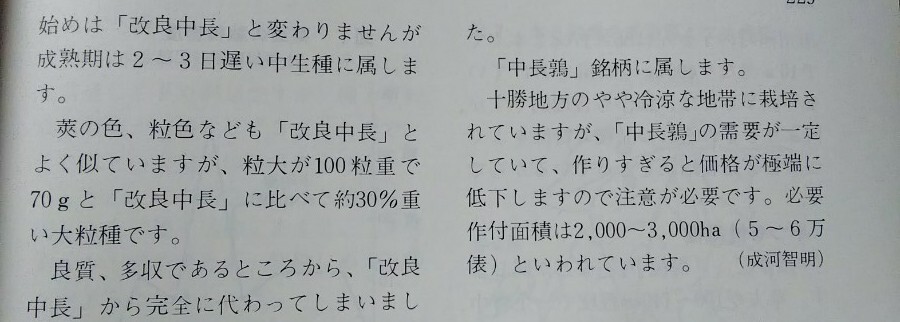 始めは「改良中長」と変わりませんが
成熟期は2～3日遅い中生種に属しま
す。
莢の色、粒色なども「改良中長」と
よく似ていますが、粒大が100粒重で
70gと「改良中長」に比べて約30%重
い大粒種です。
良質、多収であるところから、「改良
中長」から完全に代わってしまいまし
た。
「中長鶉」銘柄に属します。
十勝地方のやや冷涼な地帯に栽培さ
れていますが、「中長鶉」の需要が一定
していて、作りすぎると価格が極端に
低下しますので注意が必要です。必要
作付面積は2,000～3,000ha（5～6万
俵）といわれています。（成河智明）